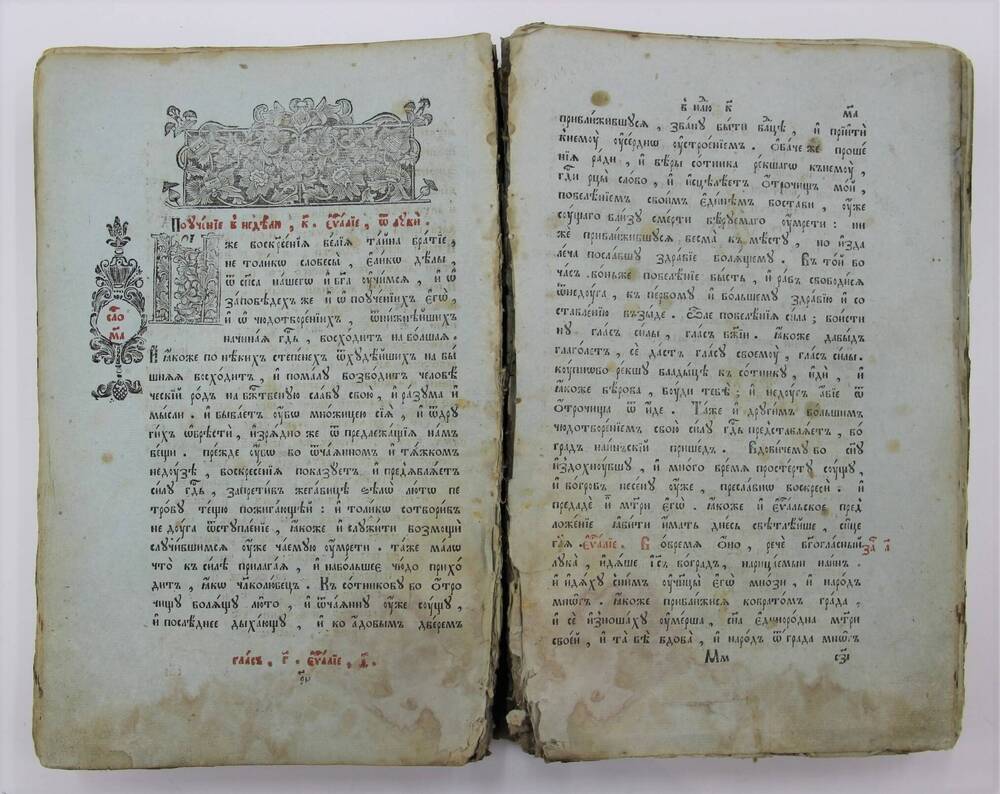 Поꙋче́нїе в̾ недѣ́лю , к҃ . є҆ѵⷢ҇лїе , ѿ лꙋкѝ .
же воскресе́нїѧ ве́лїѧ та́йна бра́тїе ,
не то́ликѡ словесы̀ , є҆ли́кѡ дѣ́лы ,
ѿ сп҃са на́шегѡ и҆ бг҃а ᲂу҆чи́мсѧ , и҆ ѡ҆
за́повѣдехъ же и҆ ѡ҆ поᲂуче́нїихъ є҆гѡ̀ ,
и҆ ѡ҆ чюдотворе́нїихъ , ѿни́жнѣйшихъ
начина́ѧ гдⷭ҇ь , восхо́дитъ на бо́лшаѧ .
И҆ ꙗ҆́коже по нѣ́кихъ степе́нехъ ѿхꙋдѣ́йшихъ на вы́
шнѧѧ восхо́дитъ , и҆ пома́лꙋ возво́дитъ человѣ́
ческїй ро́дъ на бж҃твенꙋю сла́вꙋ свою̀ , и҆ ра́зꙋма и҆
мы́сли . и҆ быва́етъ ᲂу҆́бѡ мно́жицею сїѧ̀ , и҆ ѿдрꙋ
ги́хъ ѡ҆брѣстѝ , и҆зрѧ́дно же ѿ предлежа́щїѧ на́мъ
ве́щи . пре́жде ᲂу҆́бѡ во ѿча́ѧнномъ и҆ тѧ́жкомъ
недꙋ́зѣ , воскресе́нїѧ показꙋ́етъ и҆ пред̾ѧвлѧ́етъ
си́лꙋ гдⷭ҇ь , запрети́въ жега́вицѣ ѕѣлѡ̀ лю́тѡ ᲂу҆
тро́бꙋ те́щꙋ пожига́ющей : и҆ то́ликѡ сотвори́въ
не дꙋ́га ѿстꙋпле́нїе , ꙗ҆́коже и҆ слꙋжи́ти возмощѝ
слꙋчи́вшимсѧ ᲂу҆́же ча́емꙋю ᲂу҆мре́ти . та́же ма́лѡ
что̀ к̾ си́лѣ прилага́ѧ , и҆ набо́льшее чю́до прихо́
дитъ , ꙗ҆́кѡ чл҃колю́бецъ . К̾ со́тниковꙋ бо ѻ҆́тро
чищꙋ болѧ́щꙋ лю́то , и҆ ѿча́ѧннꙋ ᲂу҆́же сꙋ́щꙋ ,
и҆ послѣ́днее дыха́ющꙋ , и҆ ко а҆́довымъ две́ремъ
гла́съ , г҃ . є҆ѵⷢ҇лїе , д҃ .
сло́
м҃а
в̾ нлⷣю к҃
м҃а
прибли́жившꙋсѧ , зва́нꙋ бы́ти вл҃цѣ , и҆ прїитѝ
к̾немꙋ̀ ᲂу҆се́рднѡ ᲂу҆строе́нїемъ . Ѻ҆ба́че же проше́
нїѧ ра́ди , и҆ вѣ́ры со́тника ре́кшагѡ к̾немꙋ̀ ,
гдⷭ҇и рцы̀ сло́во , и҆ и҆сцѣлѣ́етъ ѻ҆́трочищъ мо́й ,
повелѣ́нїемъ свои́мъ є҆ди́нѣмъ воста́ви , ᲂу҆́же
сꙋ́щаго вли́зꙋ сме́рти вѣ́рꙋемаго ᲂу҆мре́ти : ни
же прибли́жившꙋсѧ весма̀ к̾ мѣ́стꙋ , но и҆зда
ле́ча посла́вшꙋ здра́вїе болѧ́щемꙋ . Въ то́й бо
ча́съ . во́ньже повелѣ́нїе бы́сть , и҆ ра́бъ свободи́сѧ
ѿнедꙋ́га , к̾ пе́рвомꙋ и҆ бо́льшемꙋ здра́вїю и҆ со
ставле́нїю в̾зы́де . Ѽле повелѣ́нїѧ си́ла ; вои́стин
нꙋ гла́съ си́лы , гла́съ бж҃їй . ꙗ҆́коже давы́дъ
глаго́летъ , сѐ да́стъ гла́сꙋ своемꙋ̀ , гла́съ си́лы .
кꙋ́пнѡво ре́кшꙋ влады́цѣ к̾ со́тникꙋ , и҆дѝ , и҆
ꙗ҆́коже вѣ́рова , бꙋ́ди тебѣ̀ ; и҆ недꙋ́гъ а҆́бїе ѿ
ѻ҆́трочица ѿ и҆́де . Та́же и҆ дрꙋги́мъ бо́льшимъ
чюдотворе́нїемъ свою̀ си́лꙋ гдⷭ҇ь представлѧ́етъ , во́
гра́дъ наи́нъскїй прише́дъ . Вдови́чемꙋ бо сн҃ꙋ
и҆здо́хнꙋвшꙋ , и҆ мно́го вре́мѧ просте́ртꙋ сꙋ́щꙋ ,
и҆ во́гробъ несе́нꙋ ᲂу҆́же , пресла́внѡ воскресѝ . и҆
предадѐ и҆̀ мт҃ри є҆гѡ̀ . ꙗ҆́коже и҆ є҆ѵⷢ҇льское пред
ложе́нїе ꙗ҆ви́ти и҆́мать дне́сь свѣтлѣ́йше , си́це
гл҃ѧ . є҆ѵⷢ҇лїе . Во́времѧ ѻ҆́но , речѐ бг҃огла́сный
лꙋка̀ , и҆дѧ́ше і҆с҃ъ во́градъ , нарица́емый наи́нъ .
и҆ и҆дѧ́хꙋ с̾ни́мъ ᲂу҆чн҃цы̀ є҆гѡ̀ мно́зи , и҆ наро́дъ
мно́гъ . ꙗ҆́коже прибли́жисѧ ковра́томъ гра́да ,
и҆ сѐ и҆зноша́хꙋ ᲂу҆ме́рша , сн҃а є҆диноро́дна мт҃ри
свое́й , и҆ та̀ бѣ̀ вдова̀ , и҆ наро́дъ ѿ гра́да мно́гъ
за҃ л҃
Мм
сз҃і